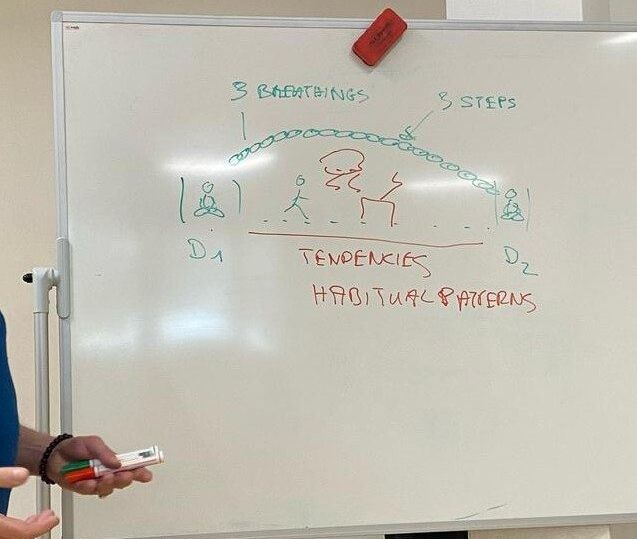 3 BREATHINGS
3 STEPS
D1
TENDENCIES
D2
HABITUAL PATTERNS